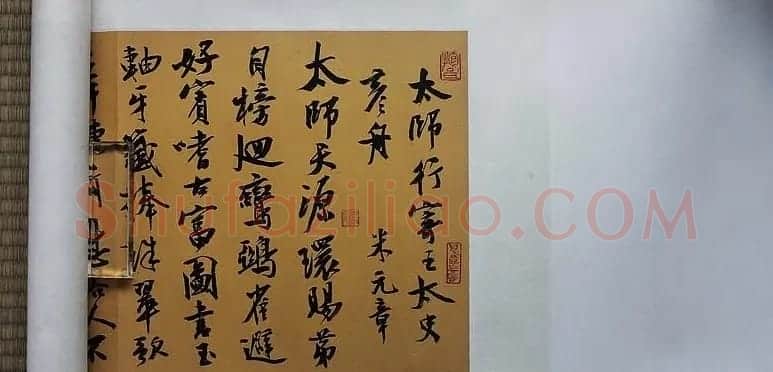 太師行寄王太史
彥舟 米元章
太師天源環賜第
自榜廻鸞鵶雀避
好賓嗜古富圖書玉
軸牙籤捧珠翠歌
人不
Shufaziliao.COM